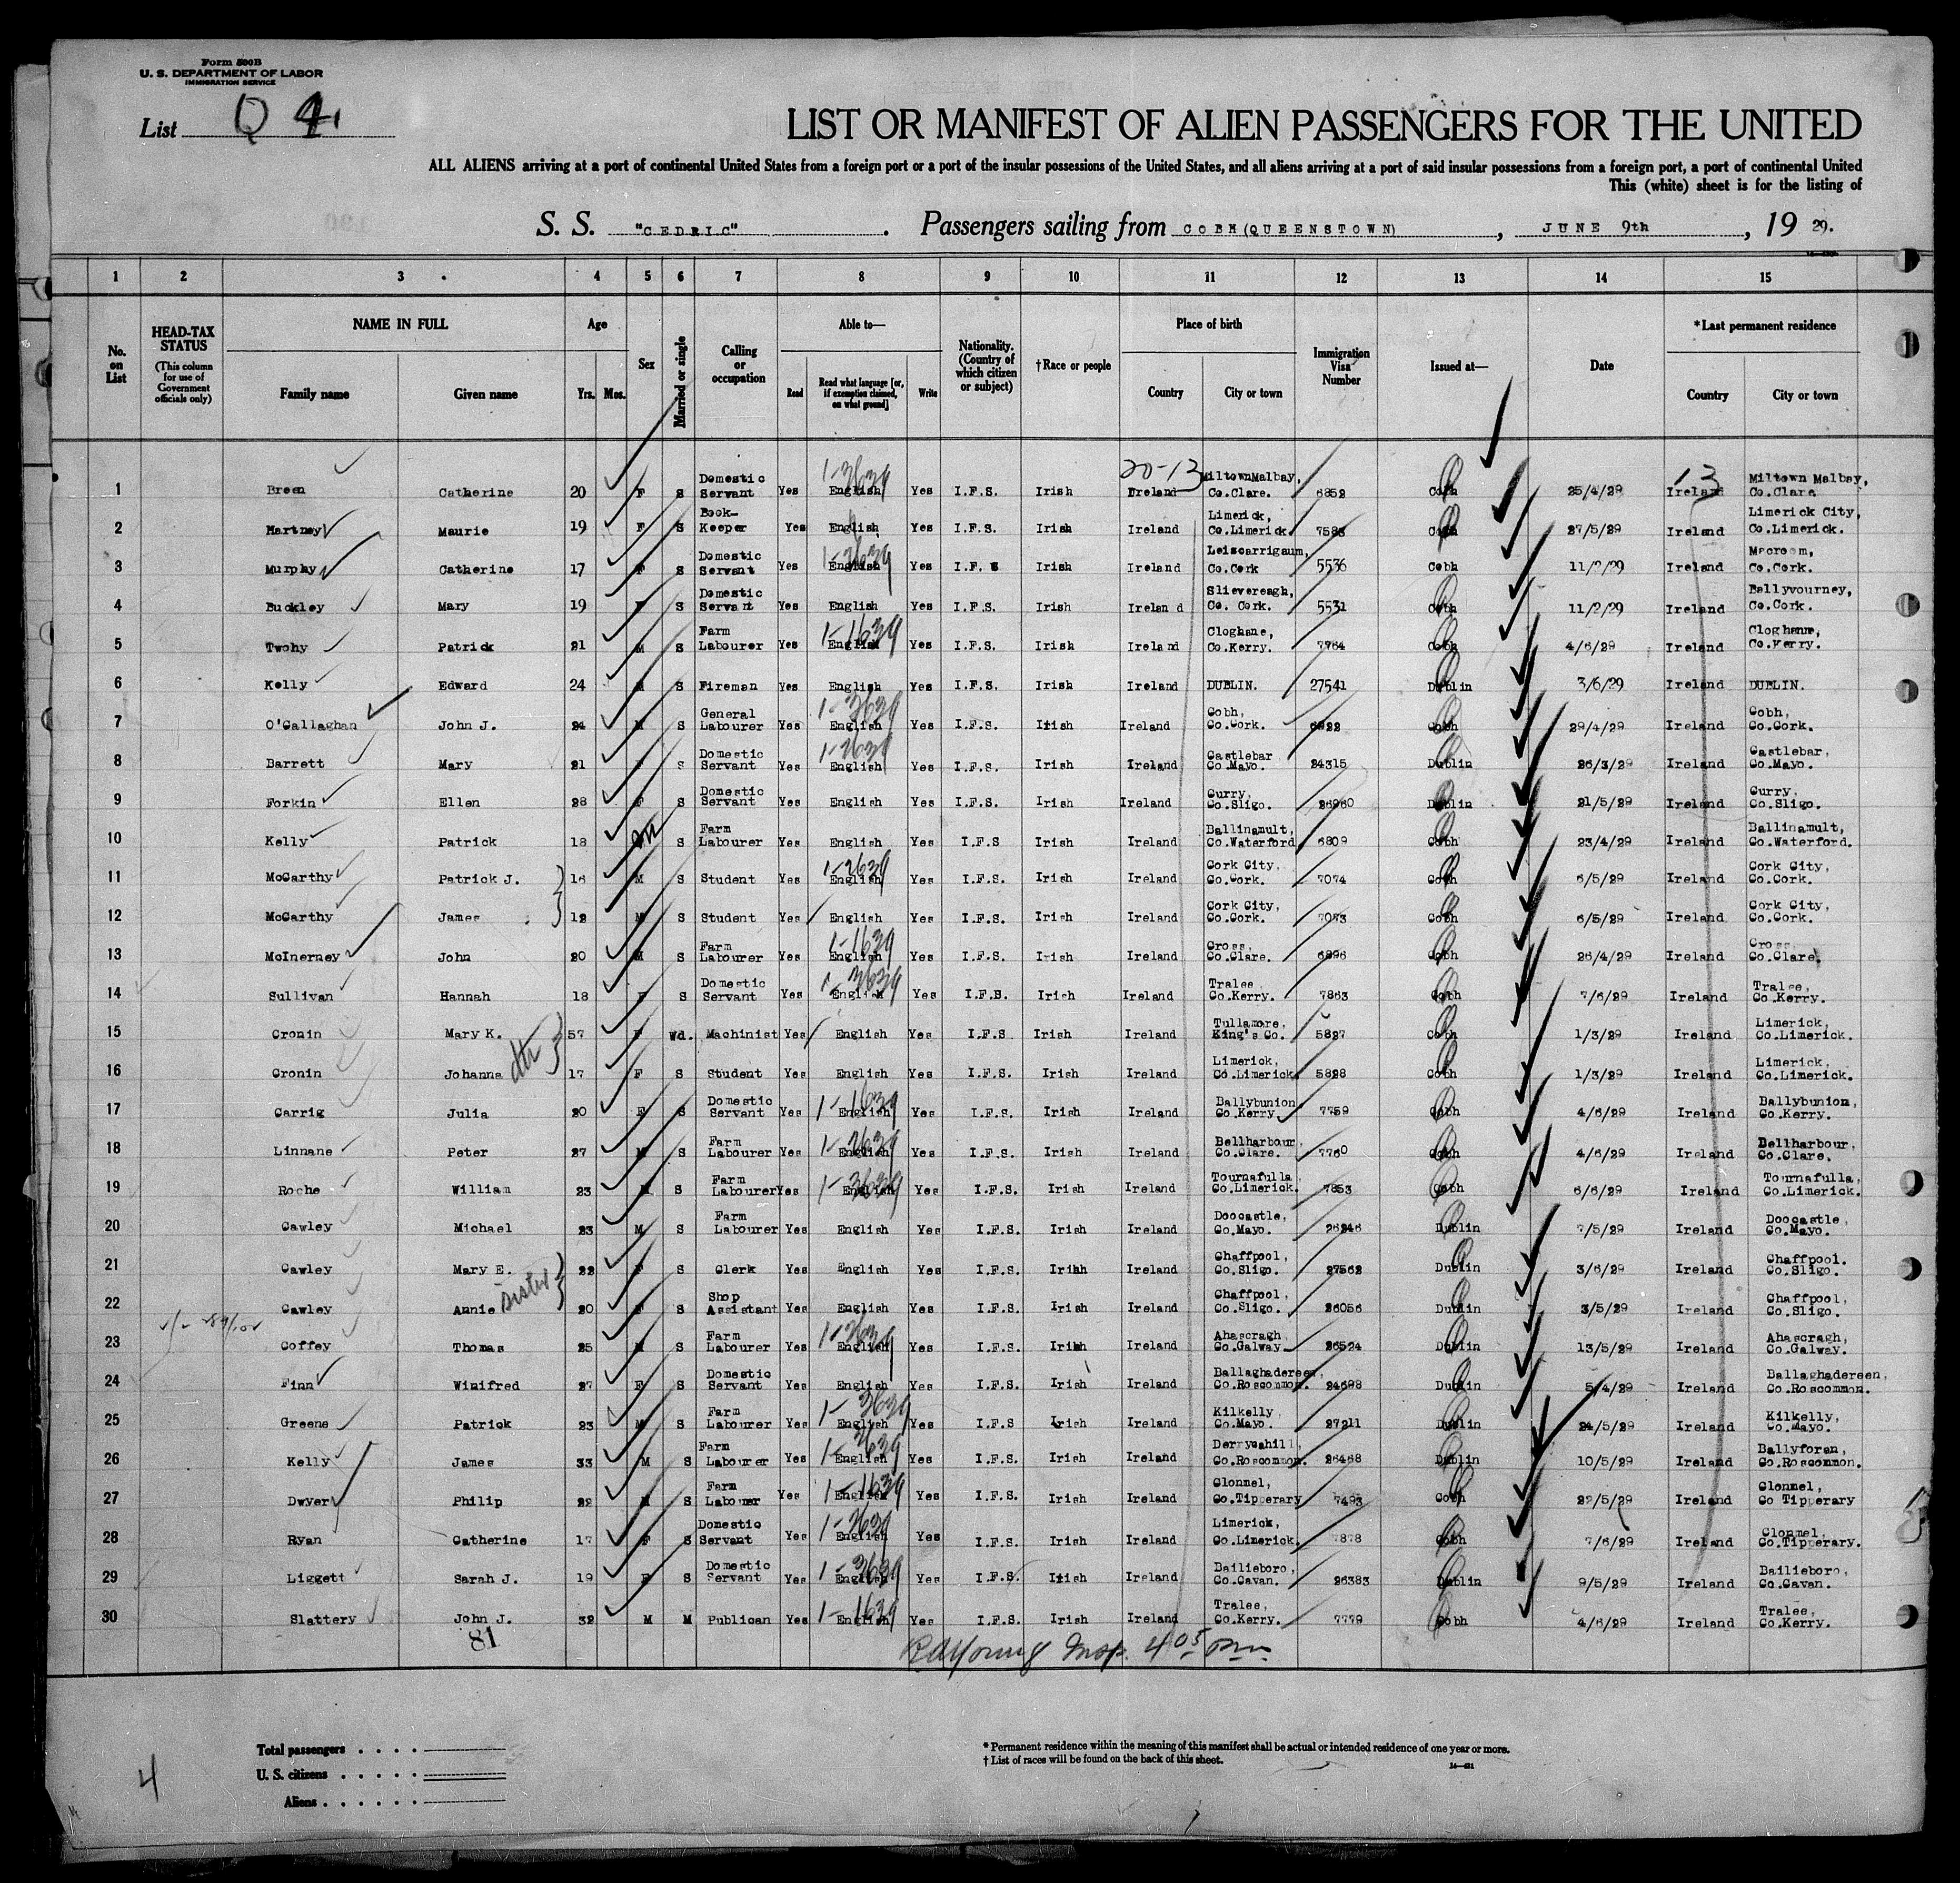 Form 500B
U. S. DEPARTMENT OF LABOR
IMMIGRATION SERVICE
List Q 4
LIST OR MANIFEST OF ALIEN PASSENGERS FOR THE UNITED
ALL ALIENS arriving at a port of continental United States from a foreign port or a port of the insular possessions of the United States, and all aliens arriving at a port of said insular possessions from a foreign port, a port of continental United
This (white) sheet is for the listing of
S. S. "CEDRIC". Passengers sailing from COBH(QUEENSTOWN), JUNE 9th, 19 29.
1 2 3 4 5 6 7 8 9 10 11 12 13 14 15
No. on List
HEAD-TAX STATUS
(This column for use of Government officials only)
NAME IN FULL
Family name Given name
Age
Yrs. Mos.
Sex
Married or single
Calling or occupation
Able to—
Read
Read what language [or, if exemption claimed, on what ground]
Write
Nationality. (Country of which citizen or subject)
†Race or people
Place of birth
Country City or town
Immigration Visa Number
Issued at—
Date
*Last permanent residence
Country City or town
20-13 13
1 Breen Catherine 20 F S Domestic Servant Yes English Yes I.F.S. Irish Ireland MiltownMalbay, Co.Clare. 6852 Cobh 25/4/29 Ireland Miltown Malbay, Co.Clare
2 Hartney Maurie 19 F S Book-Keeper Yes English Yes I.F.S. Irish Ireland Limerick, Co.Limerick 7583 Cobh 27/5/29 Ireland Limerick City, Co.Limerick.
3 Murphy Catherine 17 F S Domestic Servant Yes English Yes I.F. S Irish Ireland Leiscarrigaum, Co.Cork 5536 Cobh 11/2/29 Ireland Macroom, Co.Cork.
4 Buckley Mary 19 F S Domestic Servant Yes English Yes I.F.S. Irish Ireland Slievereagh, Co. Cork. 5531 Cobh 11/2/29 Ireland Ballyvourney, Co.Cork.
5 Twohy Patrick 21 M S Farm Labourer Yes English Yes I.F.S. Irish Ireland Cloghane, Co.Kerry. 7764 Cobh 4/6/29 Ireland Cloghane, Co.Kerry.
6 Kelly Edward 24 M S Fireman Yes English Yes I.F.S. Irish Ireland DUBLIN. 27541 Dublin 3/6/29 Ireland DUBLIN.
7 O'Callaghan John J. 24 M S General Labourer Yes English Yes I.F.S. Irish Ireland Cobh, Co.Cork. 6922 Cobh 29/4/29 Ireland Cobh, Co.Cork.
8 Barrett Mary 21 F S Domestic Servant Yes English Yes I.F.S. Irish Ireland Castlebar Co.Mayo. 24315 Dublin 26/3/29 Ireland Castlebar, Co.Mayo.
9 Forkin Ellen 28 F S Domestic Servant Yes English Yes I.F.S. Irish Ireland Curry, Co.Sligo. 26960 Dublin 21/5/29 Ireland Curry, Co.Sligo.
10 Kelly Patrick 18 M S Farm Labourer Yes English Yes I.F.S Irish Ireland Ballinamult, Co.Waterford 6809 Cobh 23/4/29 Ireland Ballinamult, Co.Waterford.
11 McCarthy Patrick J. 16 M S Student Yes English Yes I.F.S. Irish Ireland Cork City, Co.Cork. 7074 Cobh 6/5/29 Ireland Cork City, Co.Cork.
12 McCarthy James 12 M S Student Yes English Yes I.F.S. Irish Ireland Cork City, Co.Cork. 7073 Cobh 6/5/29 Ireland Cork City, Co.Cork.
13 McInerney John 20 M S Farm Labourer Yes English Yes I.F.S. Irish Ireland Cross, Co.Clare. 6896 Cobh 26/4/29 Ireland Cross Co.Clare.
14 Sullivan Hannah 18 F S Domestic Servant Yes English Yes I.F.S. Irish Ireland Tralee, Co.Kerry. 7863 Cobh 7/6/29 Ireland Tralee, Co.Kerry.
15 Cronin Mary K. 57 F Wd. Machinist Yes English Yes I.F.S Irish Ireland Tullamore, King's Co. 5827 Cobh 1/3/29 Ireland Limerick, Co.Limerick.
16 Cronin Johanna dtr 17 F S Student Yes English Yes I.F.S. Irish Ireland Limerick, Co.Limerick. 5828 Cobh 1/3/29 Ireland Limerick, Co.Limerick.
17 Carrig Julia 20 F S Domestic Servant Yes English Yes I.F.S. Irish Ireland Ballybunion Co.Kerry 7759 Cobh 4/6/29 Ireland Ballybunion, Co.Kerry.
18 Linnane Peter 27 M S Farm Labourer Yes English Yes I.F.S. Irish Ireland Bellharbour, Co.Clare. 7760 Cobh 4/6/29 Ireland Bellharbour, Co.Clare.
19 Roche William 23 M S Farm Labourer Yes English Yes I.F.S. Irish Ireland Tournafulla Co.Limerick. 7853 Cobh 6/6/29 Ireland Tournafulla, Co.Limerick.
20 Cawley Michael 23 M S Farm Labourer Yes English Yes I.F.S. Irish Ireland Doocastle, Co.Mayo. 26246 Dublin 7/5/29 Ireland Doocastle, Co.Mayo.
21 Cawley Mary E. 22 F S Clerk Yes English Yes I.F.S. Irihh Ireland Chaffpool, Co.Sligo. 27562 Dublin 3/6/29 Ireland Chaffpool. Co.Sligo.
22 Cawley Annie sister 20 F S Shop Assistant Yes English Yes I.F.S. Irish Ireland Chaffpool, Co.Sligo. 26056 Dublin 3/5/29 Ireland Chaffpool, Co.Sligo.
23 Coffey Thomas 25 M S Farm Labourer Yes English Yes I.F.S. Irish Ireland Ahascragh, Co.Galway 26524 Dublin 13/5/29 Ireland Ahascragh, Co.Galway.
24 Finn Winifred 27 F S Domestic Servant Yes English Yes I.F.S. Irish Ireland Ballaghadereen, Co.Roscommon. 24698 Dublin 5/4/29 Ireland Ballaghadereen, Co.Roscommon.
25 Greene Patrick 23 M S Farm Labourer Yes English Yes I.F.S Irish Ireland Kilkelly Co.Mayo. 27211 Dublin 24/5/29 Ireland Kilkelly, Co.Mayo.
26 Kelly James 33 M S Farm Labourer Yes English Yes I.F.S. Irish Ireland Derrycahill, Co.Roscommon. 26468 Dublin 10/5/29 Ireland Ballyforan, Co.Roscommon.
27 Dwyer Philip 22 M S Farm Labourer Yes English Yes I.F.S. Irish Ireland Clonmel, Co.Tipperary 7493 Cobh 22/5/29 Ireland Clonmel, Co Tipperary
28 Ryan Catherine 17 F S Domestic Servant Yes English Yes I.F.S. Irish Ireland Limerick, Co.Limerick. 7878 Cobh 7/6/29 Ireland Clonmel, Co.Tipperary.
29 Liggett Sarah J. 19 F S Domestic Servant Yes English Yes I.F.S. Irish Ireland Bailieboro, Co.Cavan. 26383 Dublin 9/5/29 Ireland Bailieboro, Co.Cavan.
30 Slattery John J. 32 M M Publican Yes English Yes I.F.S. Irish Ireland Tralee, Co.Kerry. 7779 Cobh 4/6/29 Ireland Tralee, Co.Kerry.
81
Insp. 4 05 pm
Total passengers
U. S. citizens
Aliens
4
* Permanent residence within the meaning of this manifest shall be actual or intended residence of one year or more.
† List of races will be found on the back of this sheet.